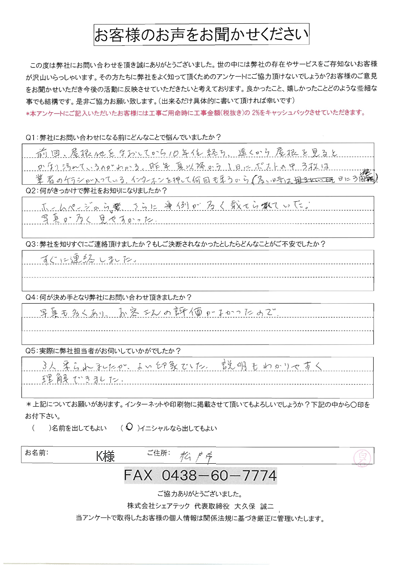 お客様のお声をお聞かせください
この度は弊社にお問い合わせを頂き誠にありがとうございました。世の中には弊社の存在やサービスをご存知ないお客様
が沢山いらっしゃいます。その方たちに弊社をよく知って頂くためのアンケートにご協力頂けないでしょうか？お客様のご意見
をお聞かせいただき今後の活動に反映させていただきたいと考えております。良かったこと、嬉しかったことどのような些細な
事でも結構です。是非ご協力お願い致します。（出来るだけ具体的に書いて頂ければ幸いです）
*本アンケートにご記入いただいたお客様には工事ご用命時に工事金額（税抜き）の 2%をキャッシュバックさせていただきます。
Q1：弊社にお問い合わせになる前にどんなことで悩んでいましたか？
前回、屋根の
をなおしてから10年位経ち、遠くから屋根を見ると
かなり汚れているのがわかる。昨年夏以降から1日にポストの中3枚は
業者のチラシが入っている。インターホンを押して何回も来るから
Q2：何がきっかけで弊社をお知りになりましたか？
ホームページから
写真が多く見やすかった。
Q3：弊社を知りすぐにご連絡頂けましたか？もしご決断されなかったとしたらどんなことがご不安でしたか？
すぐに連絡しました。
Q4：何が決め手となり弊社にお問い合わせ頂きましたか？
写真も多くあり、お客さんの評価がよかったので
Q5：実際に弊社担当者がお伺いしていかがでしたか？
3人来られましたが、よい印象でした。説明もわかりやすく
理解できました。
*上記についてお願いがあります。インターネットや印刷物に掲載させて頂いてもよろしいでしょうか？下記の中から〇印を
お付下さい。
（　）名前を出してもよい　（〇）イニシャルなら出してもよい
お名前：　K様　ご住所：　松戸市
FAX 0438-60-7774
ご協力ありがとうございました。
株式会社シェアテック 代表取締役 大久保 誠二
当アンケートで取得したお客様の個人情報は関係法規に基づき厳正に管理いたします。